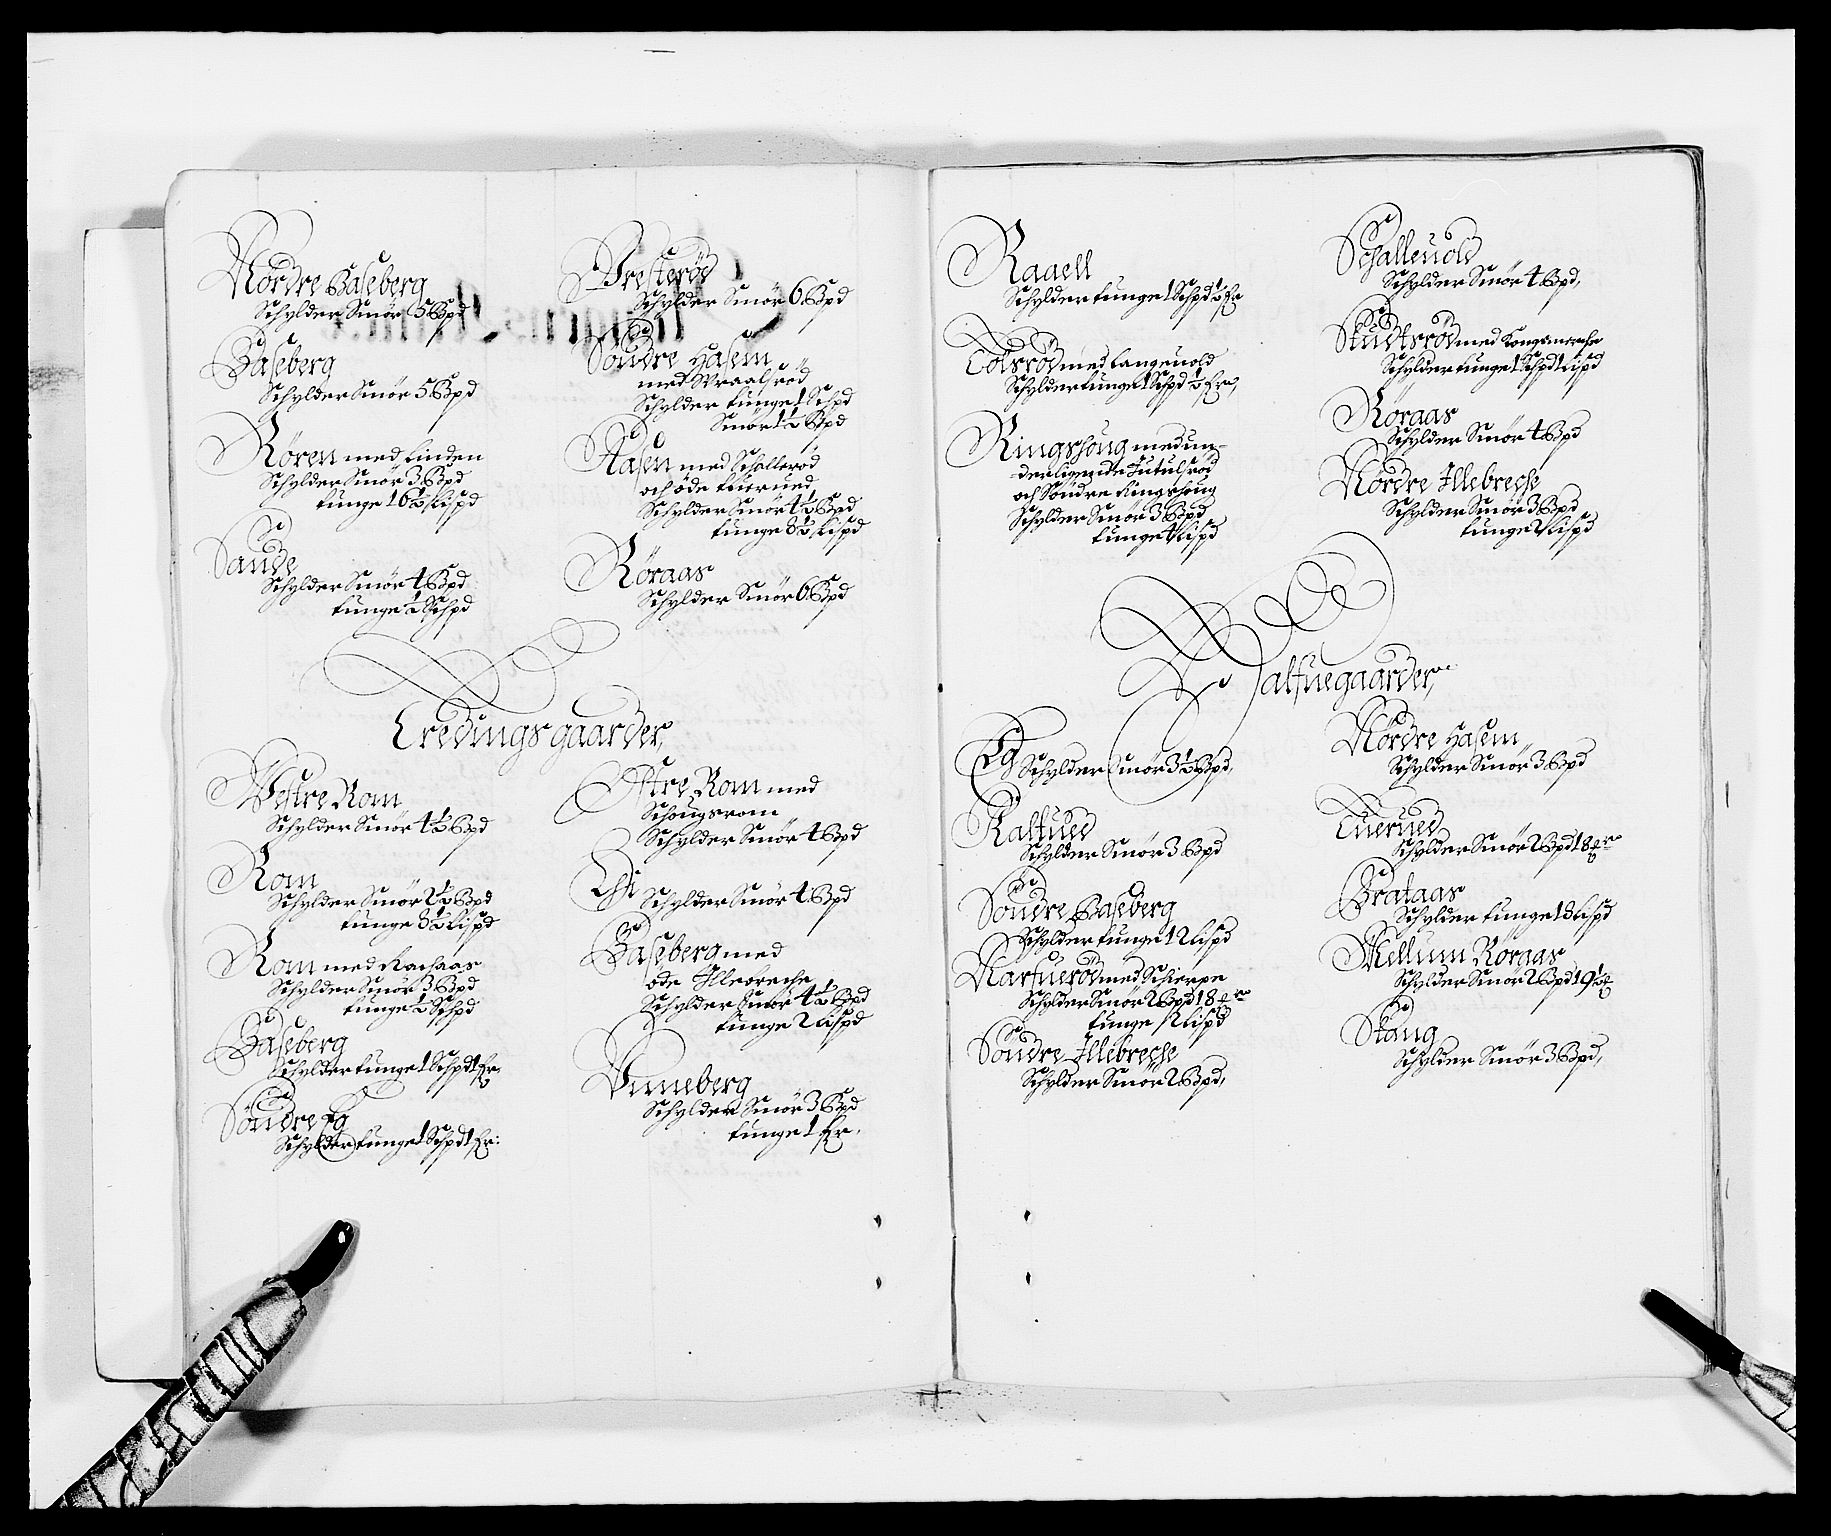 Nordre Baseberg
Schylder Smör 5 Bpd
Baseberg
Schylder Smör 5 Bpd
Rören med Linden
Schylder Smör 3 Bpd
tunge 16½ Lispd
Sande
Schylder Smör 4 Bpd
tunge ½ Schpd
Presteröd
Schylder Smör 6 Bpd
Söndre Hasem
med Wraalsröd
Schylder tunge 1 Schpd
Smör 1½ Bpd
Aasen med Schalleröd
och öde Tuerued
Schylder Smör 4½ Bpd
tunge 8½ Lispd
Röraas
Schylder Smör 6 Bpd
Tredings gaarder,
Westre Rom
Schylder Smör 4½ Bpd
Rom
Schylder Smör 2½ Bpd
tunge 8½ Lispd
Rom med Rachaas
Schylder Smör 3 Bpd
tunge ½ Schpd
Baseberg
Schylder tunge 1 Schpd 1 fr.
Söndre Eg
Schylder tunge 1 Schpd 1 fr:
Östre Rom med
Schougsrom
Schylder Smör 4 Bpd
Schylder Smör 4 Bpd
Baseberg med
öde Illebreche
Schylder Smör 4½ Bpd
tunge 2 Lispd
Vinneberg
Schylder Smör 3 Bpd
tunge 1 fr.
Raaell
Schylder tunge 1 Schpd ½ fr
Totsröd med Langeuold
Schylder tunge 1 Schpd ½ fr,
Ringshoug med un-
derligende Jutulsröd
och Söndre Ringshoug
Schylder Smör 3 Bpd
tunge 4 Lispd
Schalleuold
Schylder Smör 4 Bpd,
Studtsröd med
Schylder tunge 1 Schpd 1 Lispd
Röraas
Schylder Smör 4 Bpd
Nordre Illebreche
Schylder Smör 3 Bpd
tunge 2 Lispd
Halfuegaarder,
Eg Schylder Smör 3½ Bpd,
Kalfued
Schylder Smör 3 Bpd
Söndre Baseberg
Schylder tunge 12 Lispd
Narfueröd med Schierpe
Schylder Smör 2 Bpd 18 mr
tunge 2 Lispd
Söndre Illebreche
Schylder Smör 2 Bpd,
Nordre Hasem
Schylder Smör 3 Bpd
Tuerued
Schylder Smör 2 Bpd 18 mr
Brataas
Schylder tunge 18 Lispd
Mellum Röraas
Schylder Smör 2 Bpd 19½
Stang
Schylder Smör 3 Bpd,